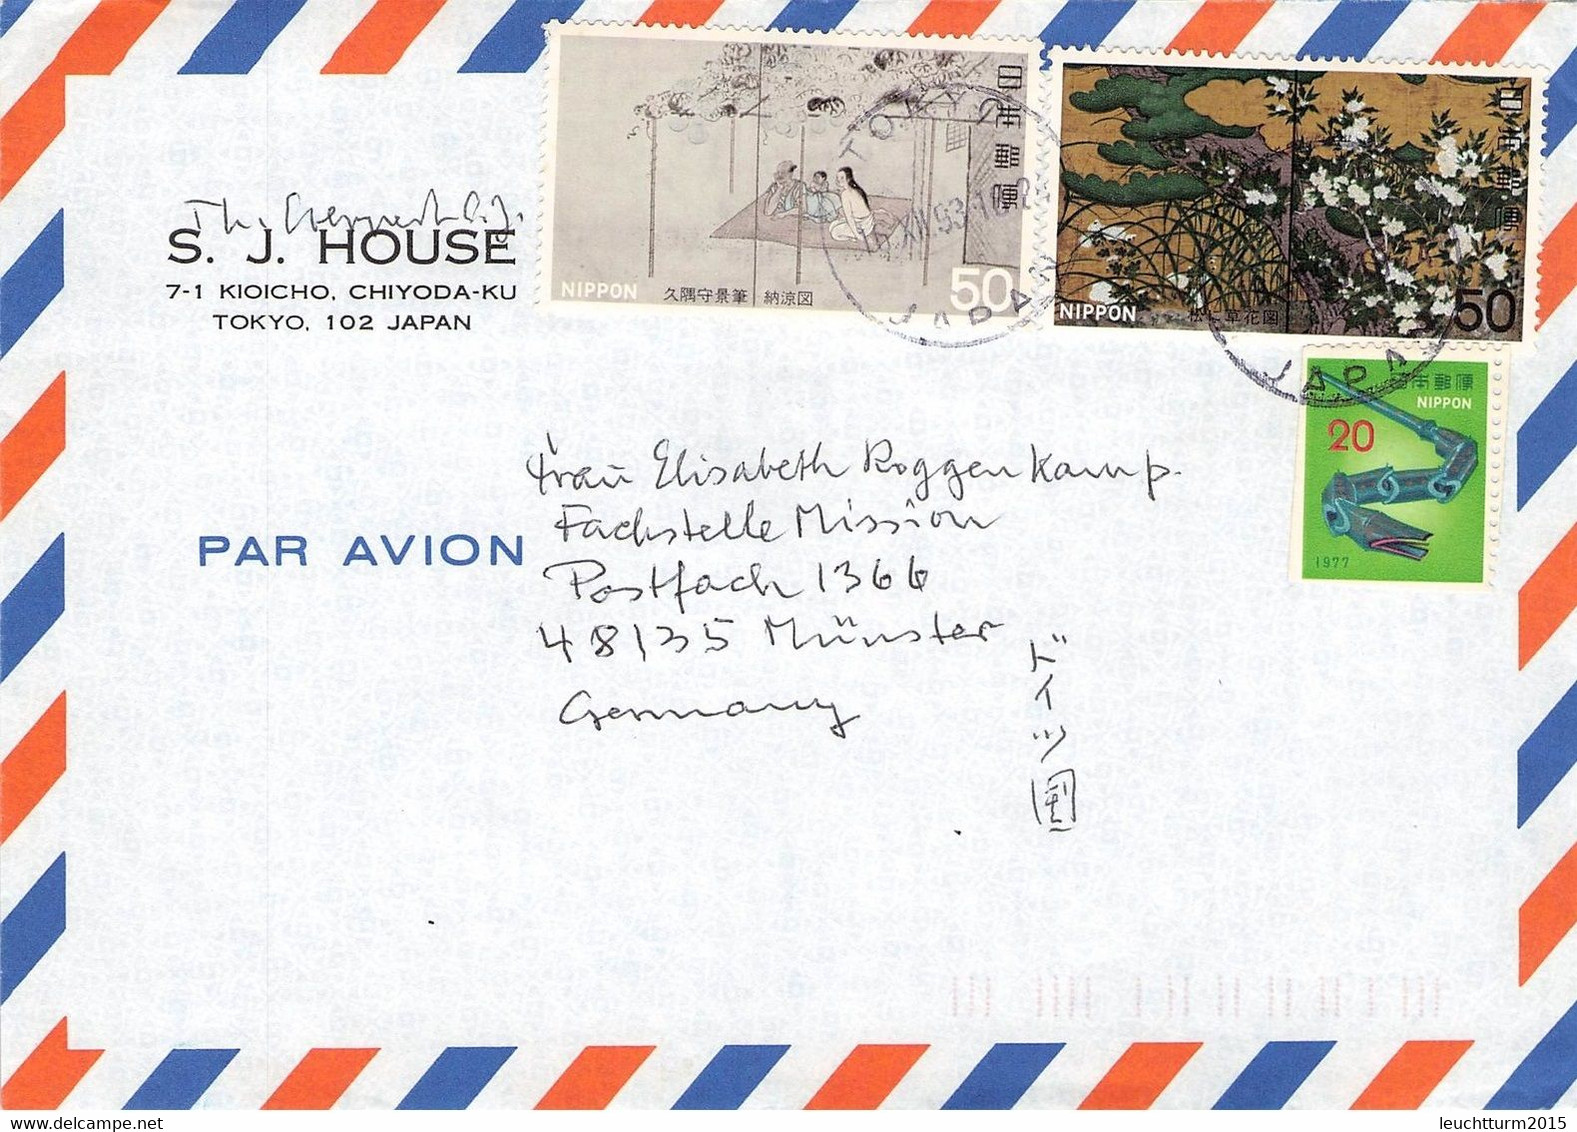 S. J. HOUSE
7-1 KIOICHO, CHIYODA-KU
TOKYO, 102 JAPAN
PAR AVION
日本郵便
NIPPON
久隅守景筆 納涼図
50
日本郵便
NIPPON
松に草花図
50
日本郵便
NIPPON
20
1977
TOKYO
JAPAN
JAPAN
Frau Elisabeth Roggenkamp.
Fachstelle Mission
Postfach 1366
48135 Münster
Germany
ドイツ国
leuchtturm2015